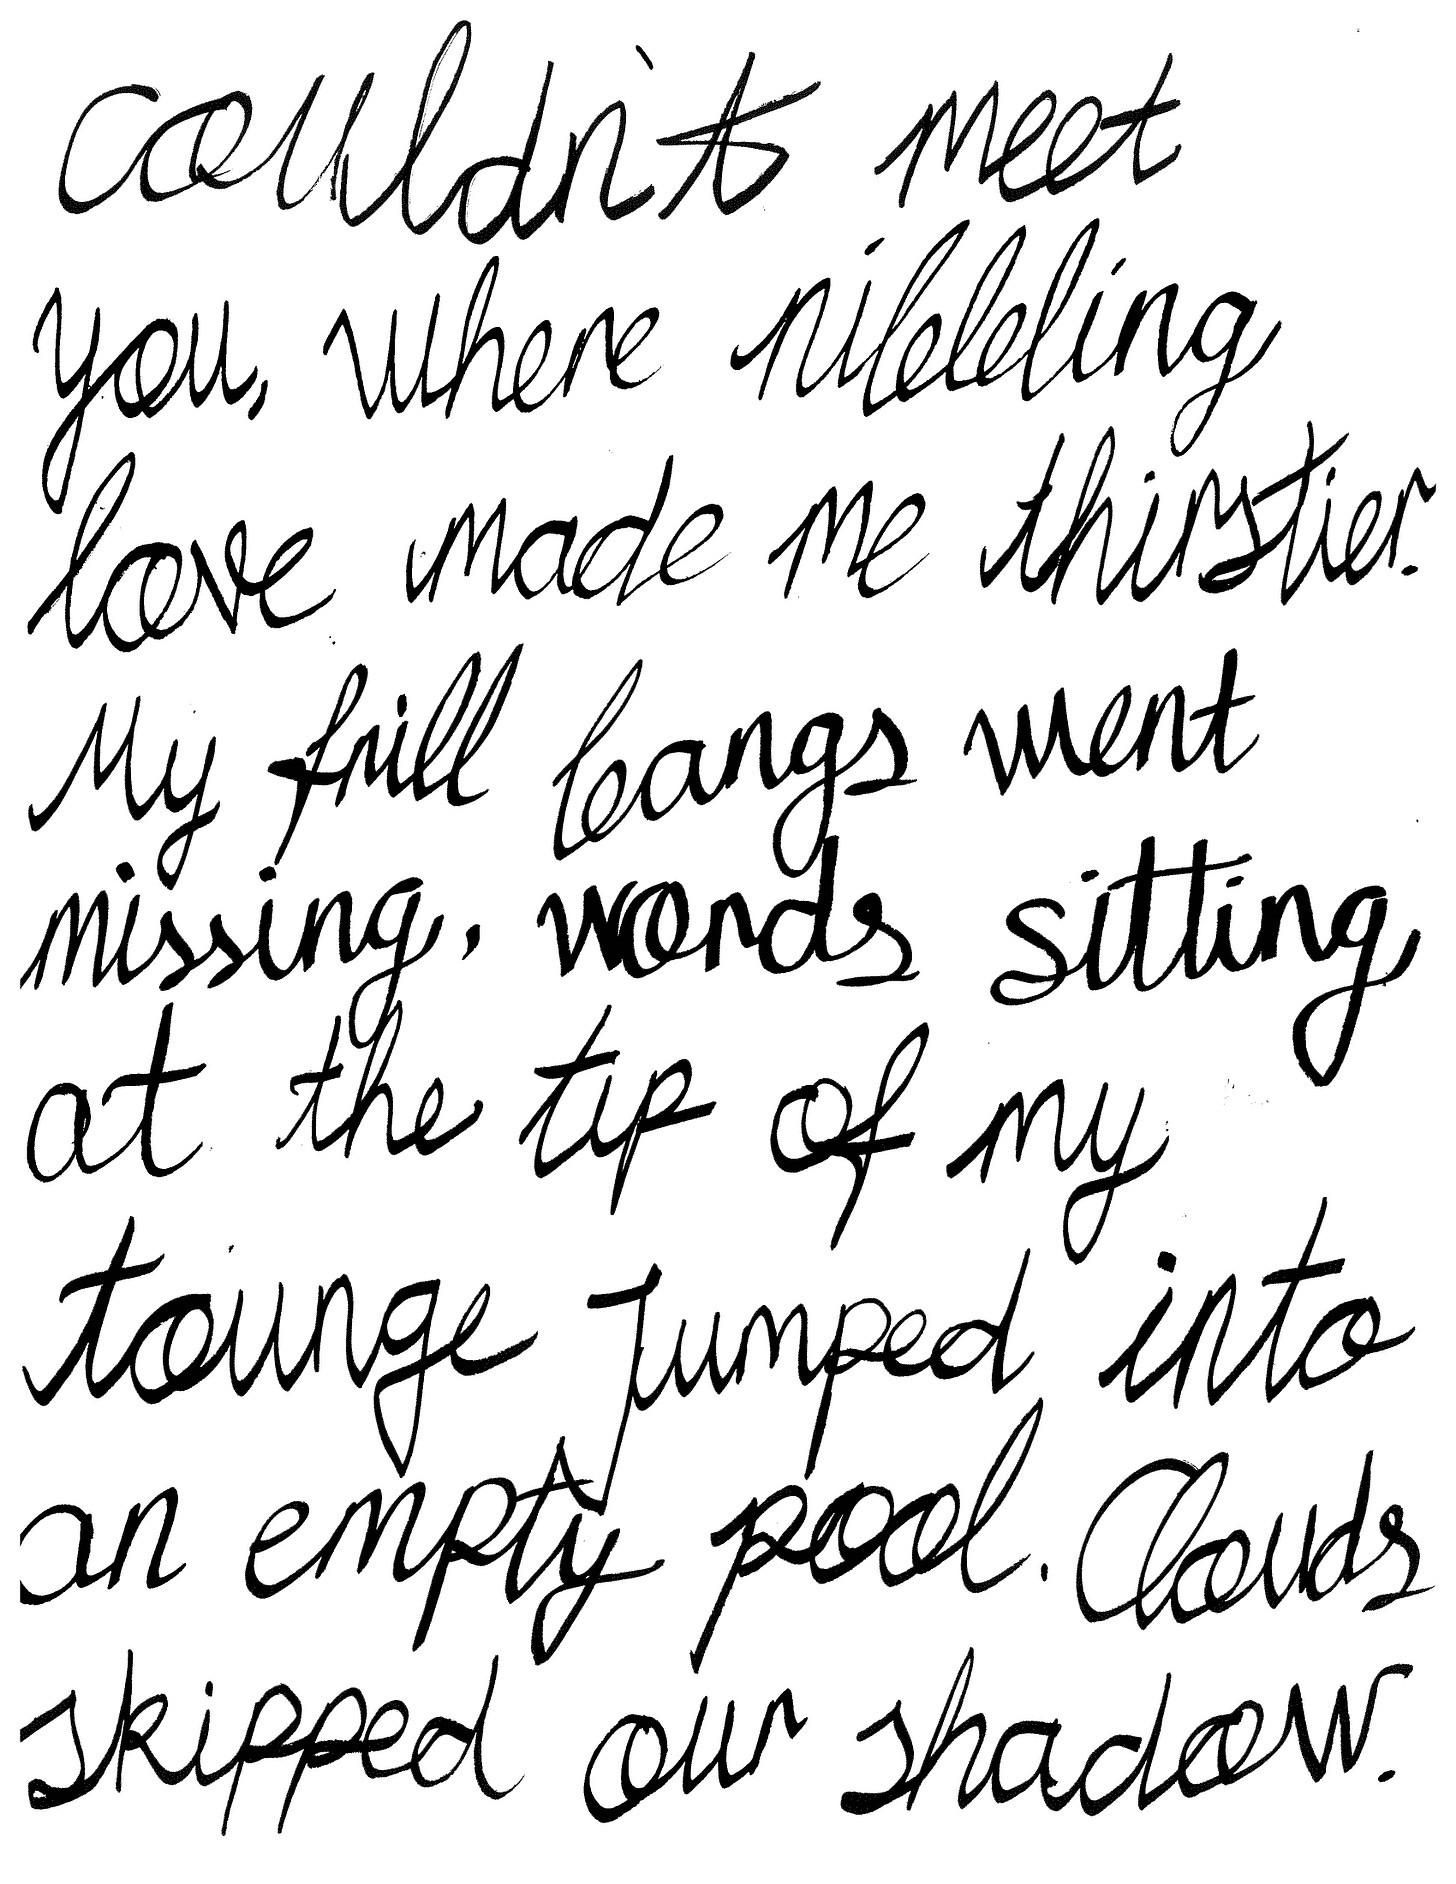 Couldn't meet
you, where nibbling
love made me thirstier.
My frill bangs went
missing, words sitting
at the tip of my
tounge jumped into
an empty pool. Clouds
skipped our shadow.